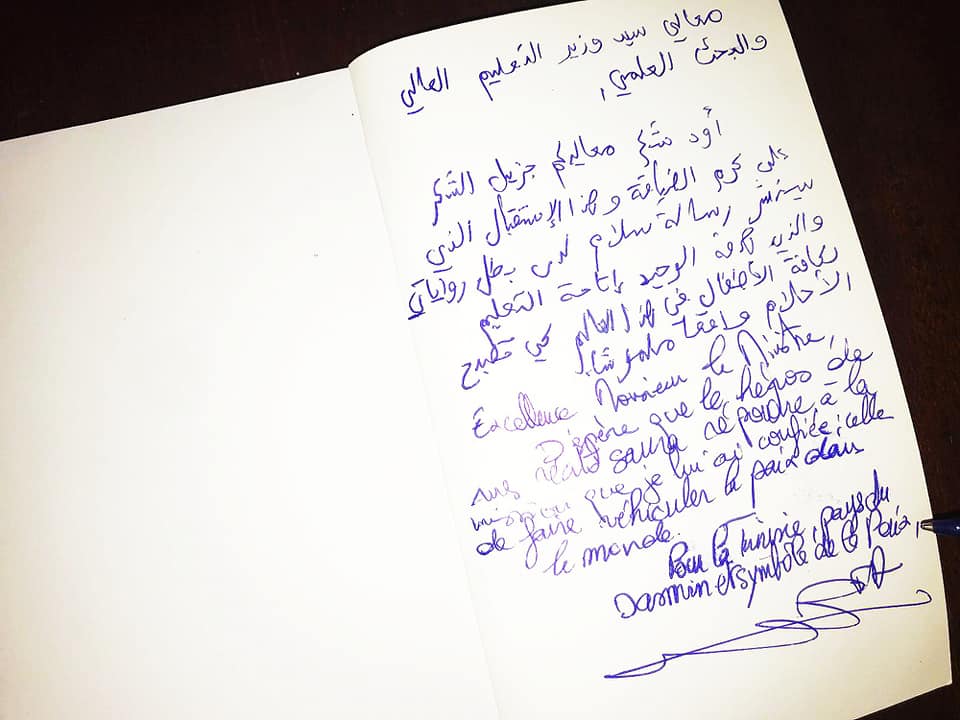 معالي سيد وزير التعليم العالي
والبحث العلمي،
أود شكر معاليكم جزيل الشكر
على كرم الضيافة و هذا الإستقبال الذي
سينشر رسالة سلام لدى بطل رواياتي
والذي هدفه الوحيد إتاحة التعليم
لكافة الأطفال في هذا العالم كي تصبح
الأحلام واقعا ملموسا.
Excellence Monsieur le Ministre,
J'espère que le héros de
mes récits saura répondre à la
mission que je lui ai confiée; celle
de faire véhiculer la paix dans
le monde.
Pour la Tunisie, pays du
Jasmin et symbole de la Paix,